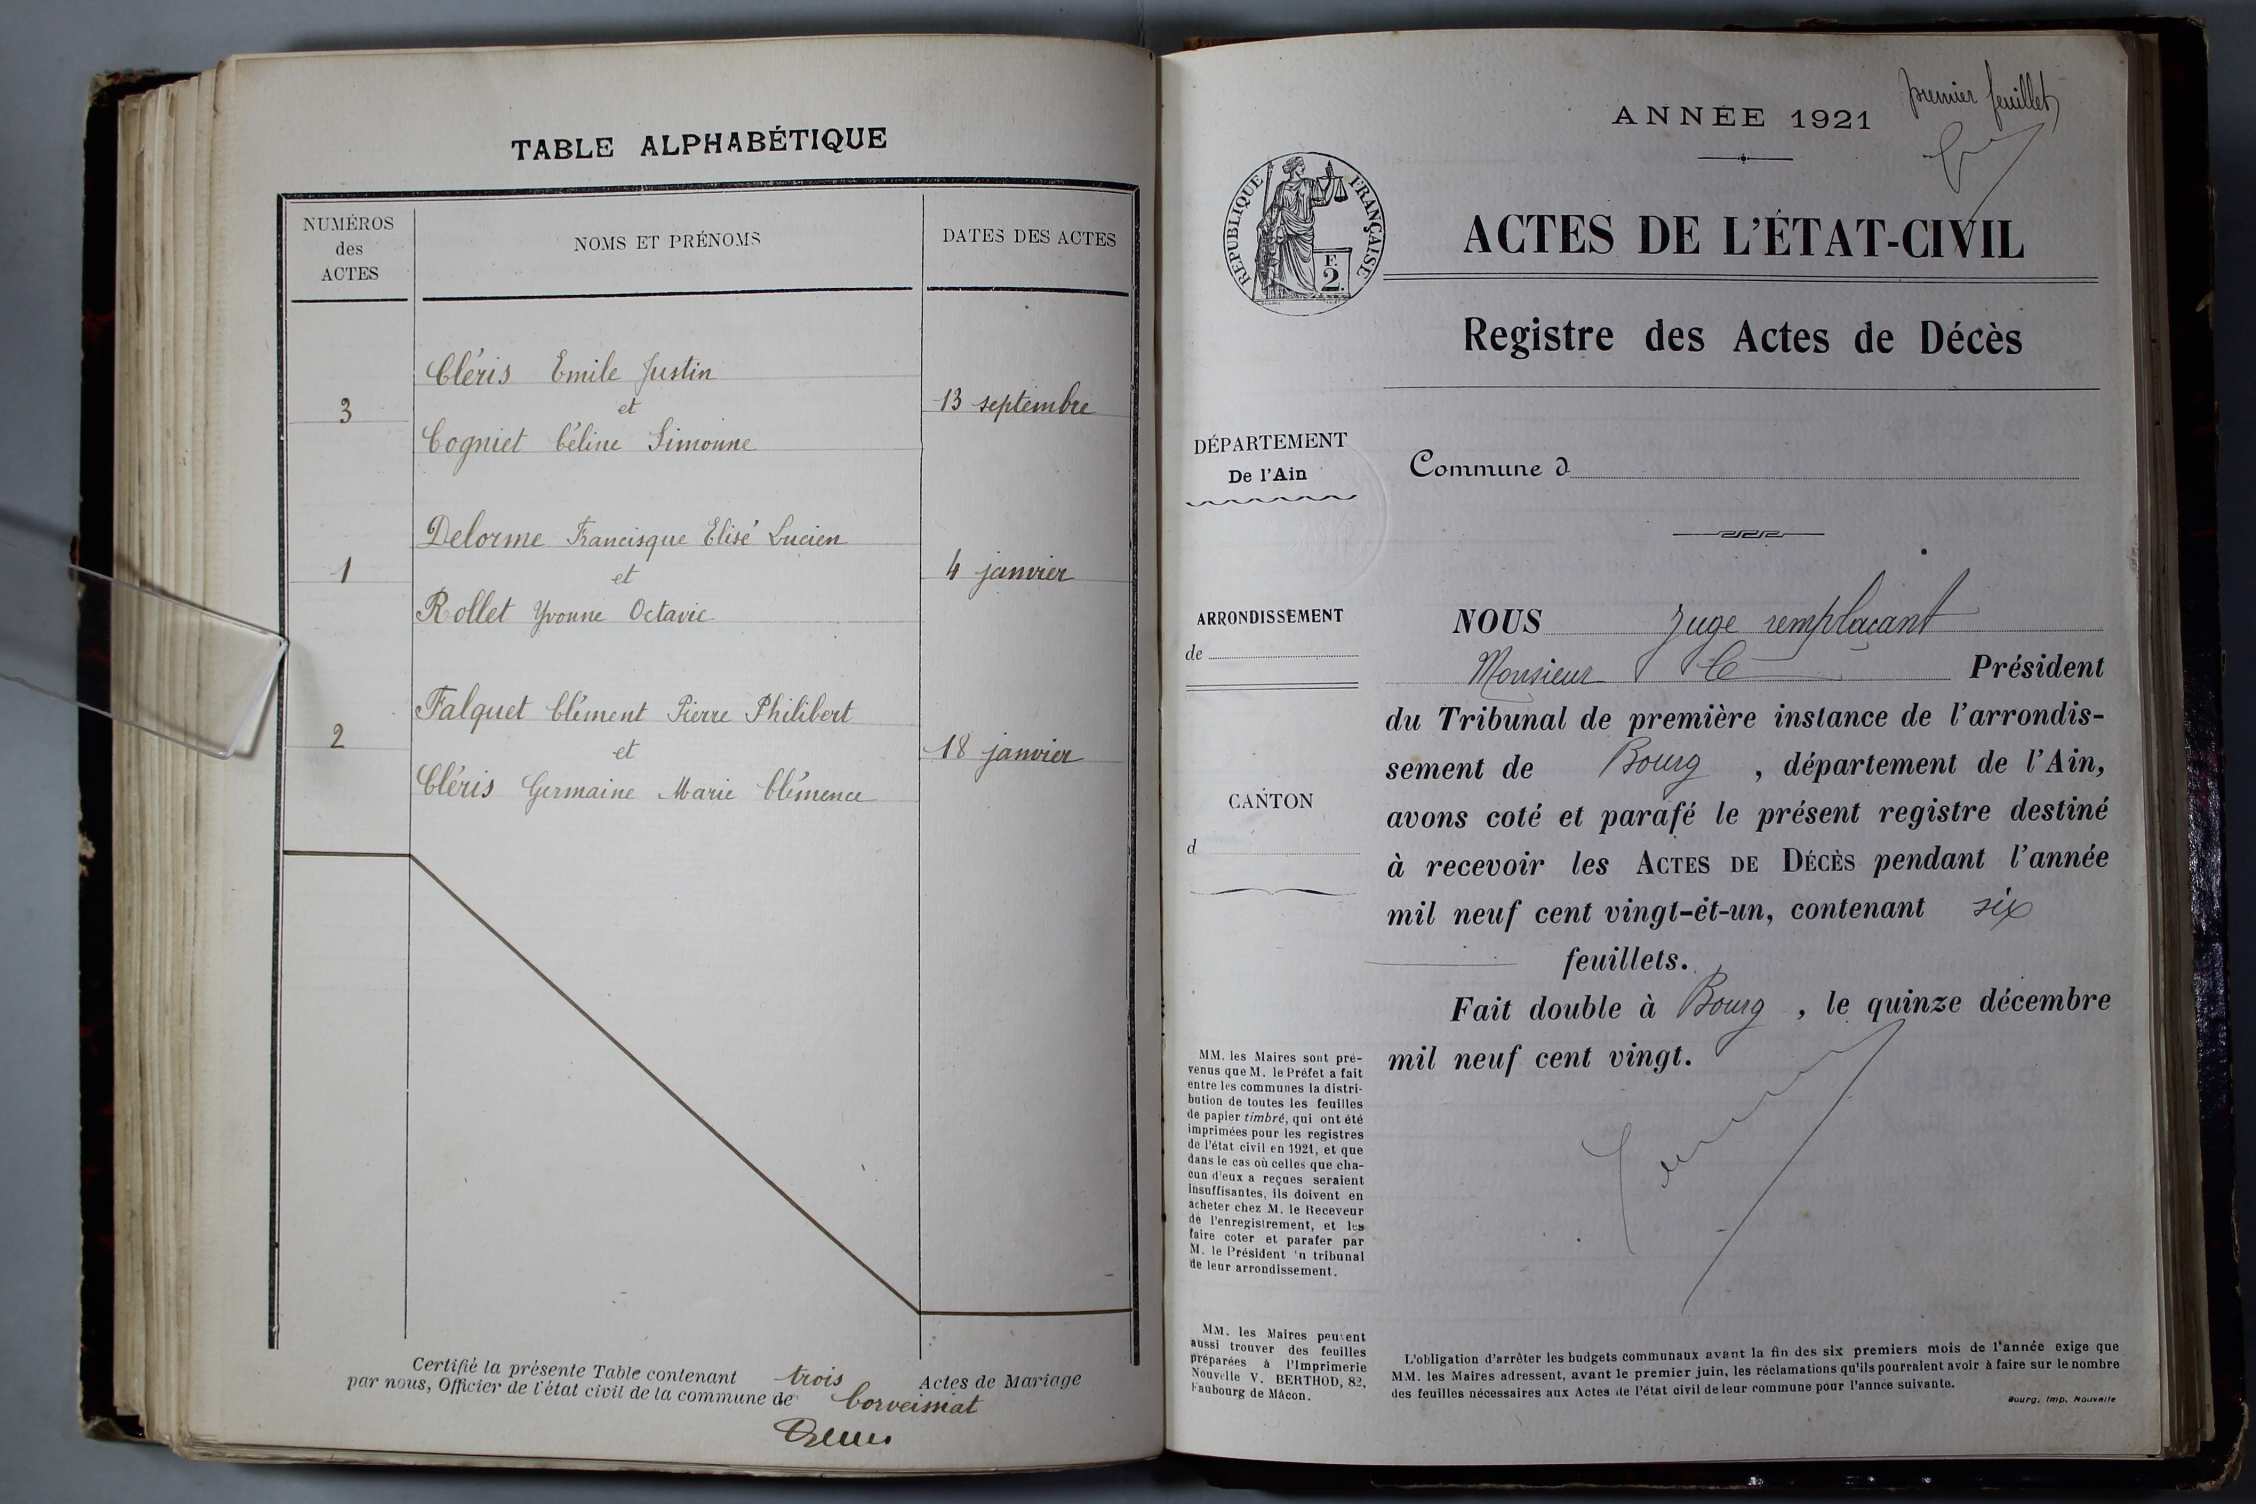 TABLE ALPHABÉTIQUE
NUMÉROS
des
ACTES
NOMS ET PRÉNOMS
DATES DES ACTES
Cléris Emile Justin
3
et
13 septembre
Cogniet Céline Simonne
Delorme Francisque Elisé Lucien
1
et
4 janvier
Rollet Yvonne Octavie
Falquet Clément Pierre Philibert
2
et
18 janvier
Cléris Germaine Marie Clémence
Certifié la présente Table contenant trois Actes de Mariage
par nous, Officier de l'état civil de la commune de Corveissiat
premier feuillet
ANNÉE 1921
RÉPUBLIQUE FRANÇAISE
F.
2.
ACTES DE L'ÉTAT-CIVIL
Registre des Actes de Décès
DÉPARTEMENT
De l'Ain
Commune d
ARRONDISSEMENT
de
CANTON
d
NOUS Juge remplaçant
Monsieur le Président
du Tribunal de première instance de l'arrondis-
sement de Bourg, département de l'Ain,
avons coté et parafé le présent registre destiné
à recevoir les ACTES DE DÉCÈS pendant l'année
mil neuf cent vingt-et-un, contenant six
feuillets.
Fait double à Bourg, le quinze décembre
mil neuf cent vingt.
MM. les Maires sont pré-
venus que M. le Préfet a fait
entre les communes la distri-
bution de toutes les feuilles
de papier timbré, qui ont été
imprimées pour les registres
de l'état civil en 1921, et que
dans le cas où celles que cha-
cun d'eux a reçues seraient
insuffisantes, ils doivent en
acheter chez M. le Receveur
de l'enregistrement, et les
faire coter et parafer par
M. le Président 'u tribunal
de leur arrondissement.
MM. les Maires peuvent
aussi trouver des feuilles
préparées à l'Imprimerie
Nouvelle V. BERTHOD, 82,
Faubourg de Mâcon.
L'obligation d'arrêter les budgets communaux avant la fin des six premiers mois de l'année exige que
MM. les Maires adressent, avant le premier juin, les réclamations qu'ils pourraient avoir à faire sur le nombre
des feuilles nécessaires aux Actes de l'état civil de leur commune pour l'année suivante.
Bourg, Imp. Nouvelle